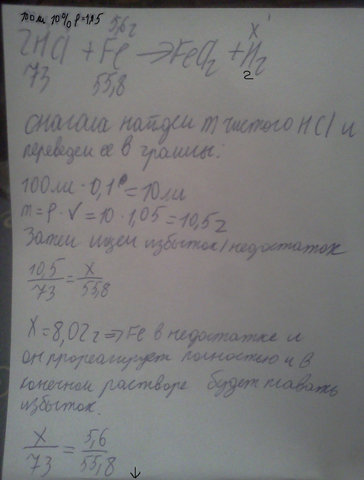 100 мл 10% ρ=1,05
5,6г
x
2HCl + Fe → FeCl₂ + H₂
73
55,8
2
сначала найдем m чистого HCl и
переведем ее в граммы:
100мл · 0,1 = 10 мл
m = ρ · V = 10 · 1,05 = 10,5 г
Затем ищем избыток/недостаток
10,5/73 = x/55,8
x = 8,02 г ⇒ Fe в недостатке и
он прореагирует полностью и в
конечном растворе будет плавать
избыток.
x/73 = 5,6/55,8
↓